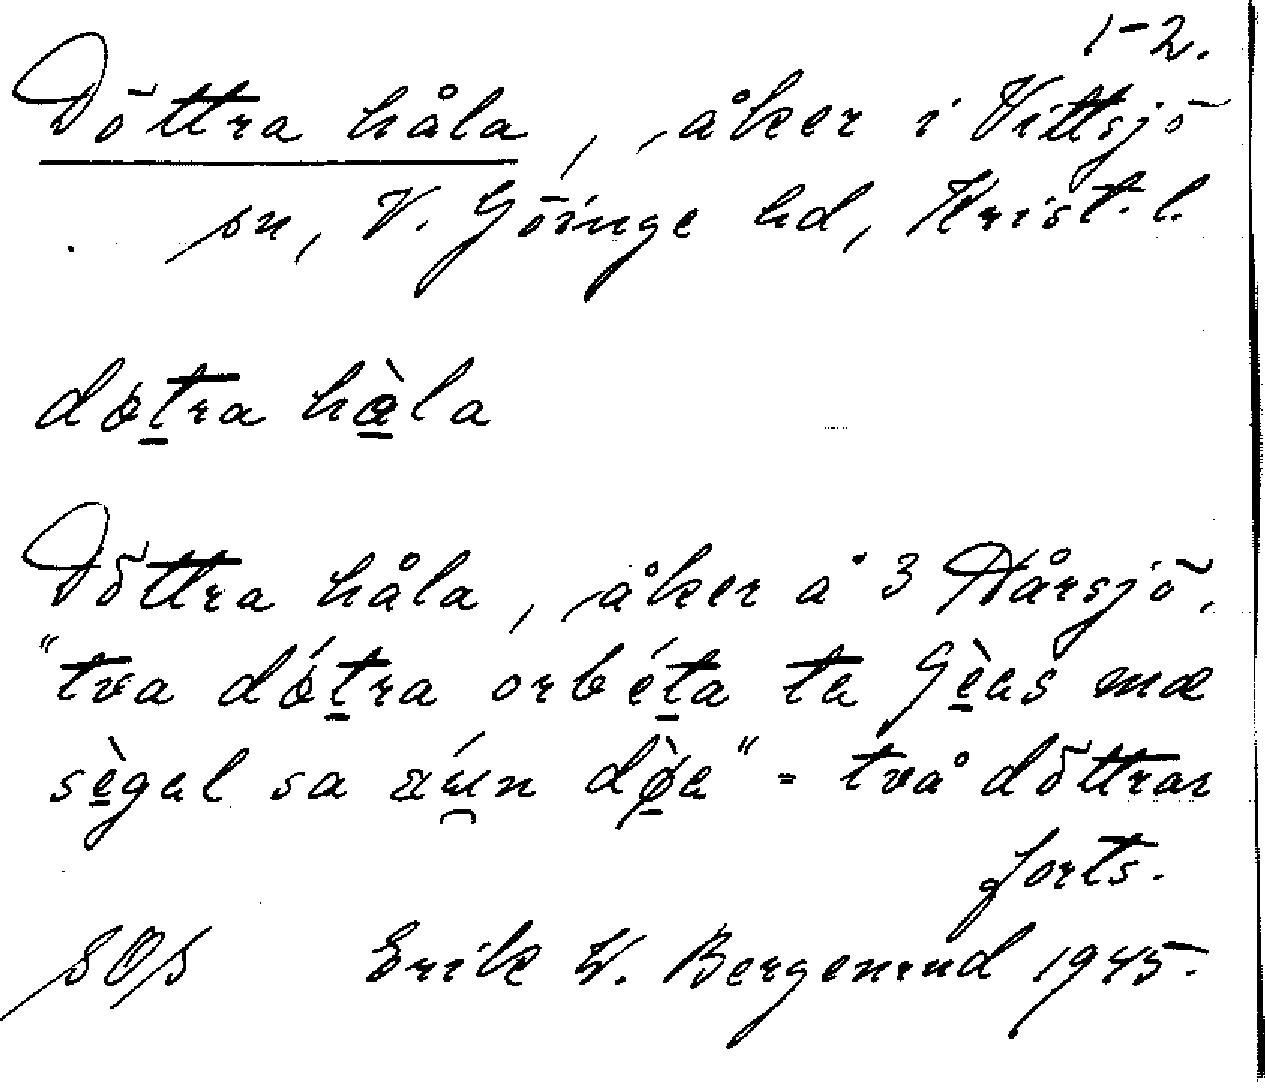 1-2.
Döttra håla, åker i Vittsjö
sn, V. Göinge hd, Krist. l.
døt̲ra hàla
Döttra håla, åker å 3 Hårsjö.
"tva dǿt̲ra orbét̲a ta Gèas mæ
sègal sa dø̀a" = två döttrar
forts.
SOS Erik W. Bergenrud 1945.